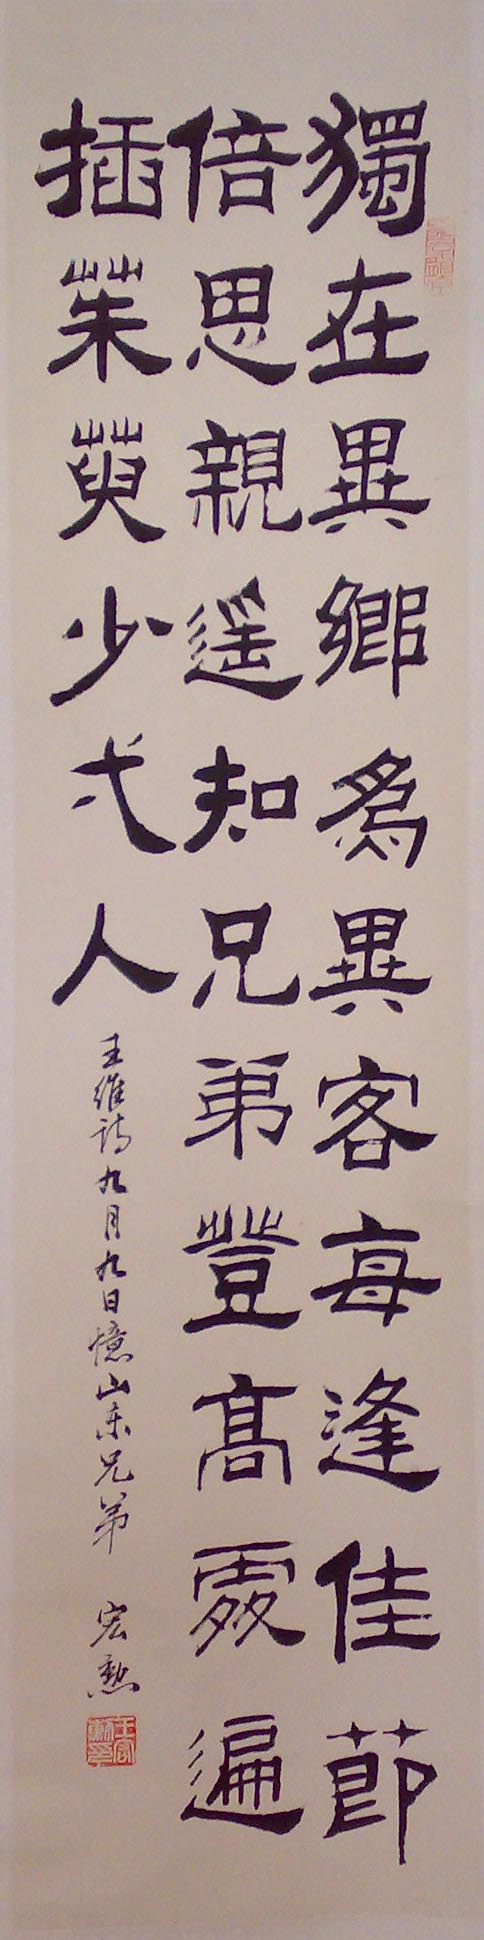 獨在異鄉爲異客每逢佳節
倍思親遥知兄弟豋高處遍
插茱萸少弌人
王維詩九月九日憶山东兄弟 宏勲